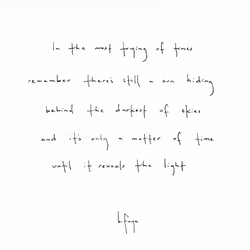 In the most trying of times
remember there's still a sun hiding
behind the darkest of skies
and it's only a matter of time
until it reveals the light
b.faye